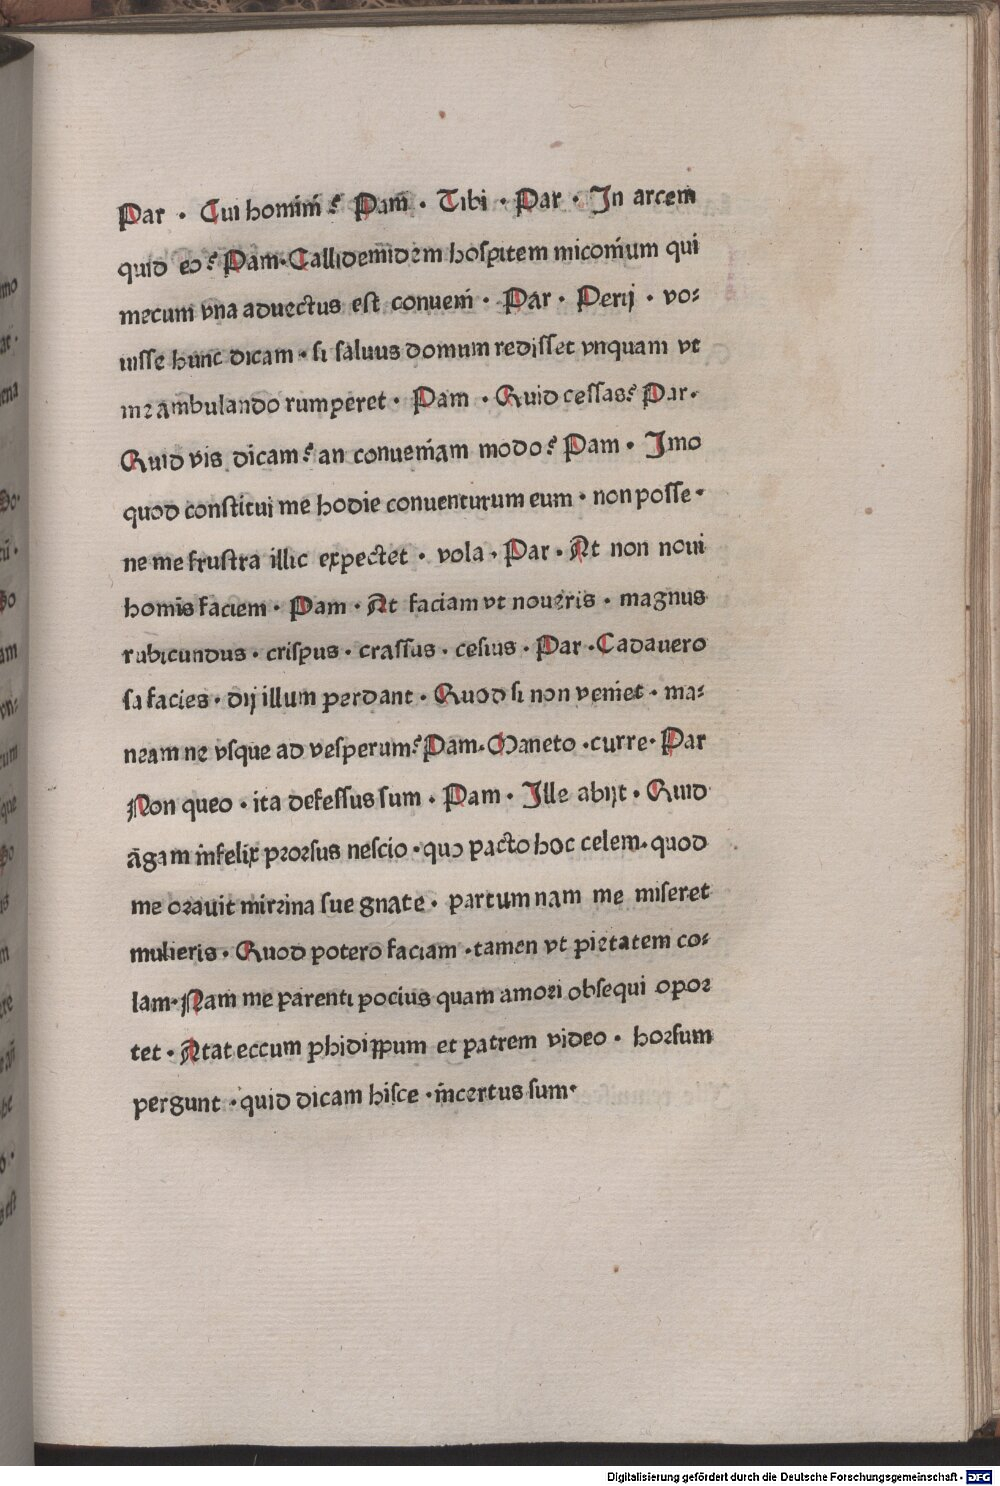 Par · Cui homini ? Pam · Tibi · Par · In arcem
quid eo ? Pam · Callidemidem hospitem miconium qui
mecum vna aduectus est conueni · Par · Perij · vo-
uisse hunc dicam · si saluus domum redisset vnquam vt
me ambulando rumperet · Pam · Quid cessas ? Par ·
Quid vis dicam ? an conueniam modo ? Pam · Imo
quod constitui me hodie conuenturum eum · non posse ·
ne me frustra illic expectet · vola · Par · At non noui
hominis faciem · Pam · At faciam vt noueris · magnus
rubicundus · crispus · crassus · cesius · Par · Cadauero
sa facies · dij illum perdant · Quod si non veniet · ma-
neam ne vsque ad vesperum ? Pam · Maneto · curre · Par
Non queo · ita defessus sum · Pam · Ille abijt · Quid
agam infelix prorsus nescio · quo pacto hoc celem · quod
me orauit mirrina sue gnate · partum nam me miseret
mulieris · Quod potero faciam · tamen vt pietatem co-
lam · Nam me parenti pocius quam amori obsequi opor
tet · Atat eccum phidippum et patrem video · horsum
pergunt · quid dicam hisce · incertus sum ·
Digitalisierung gefördert durch die Deutsche Forschungsgemeinschaft - DFG